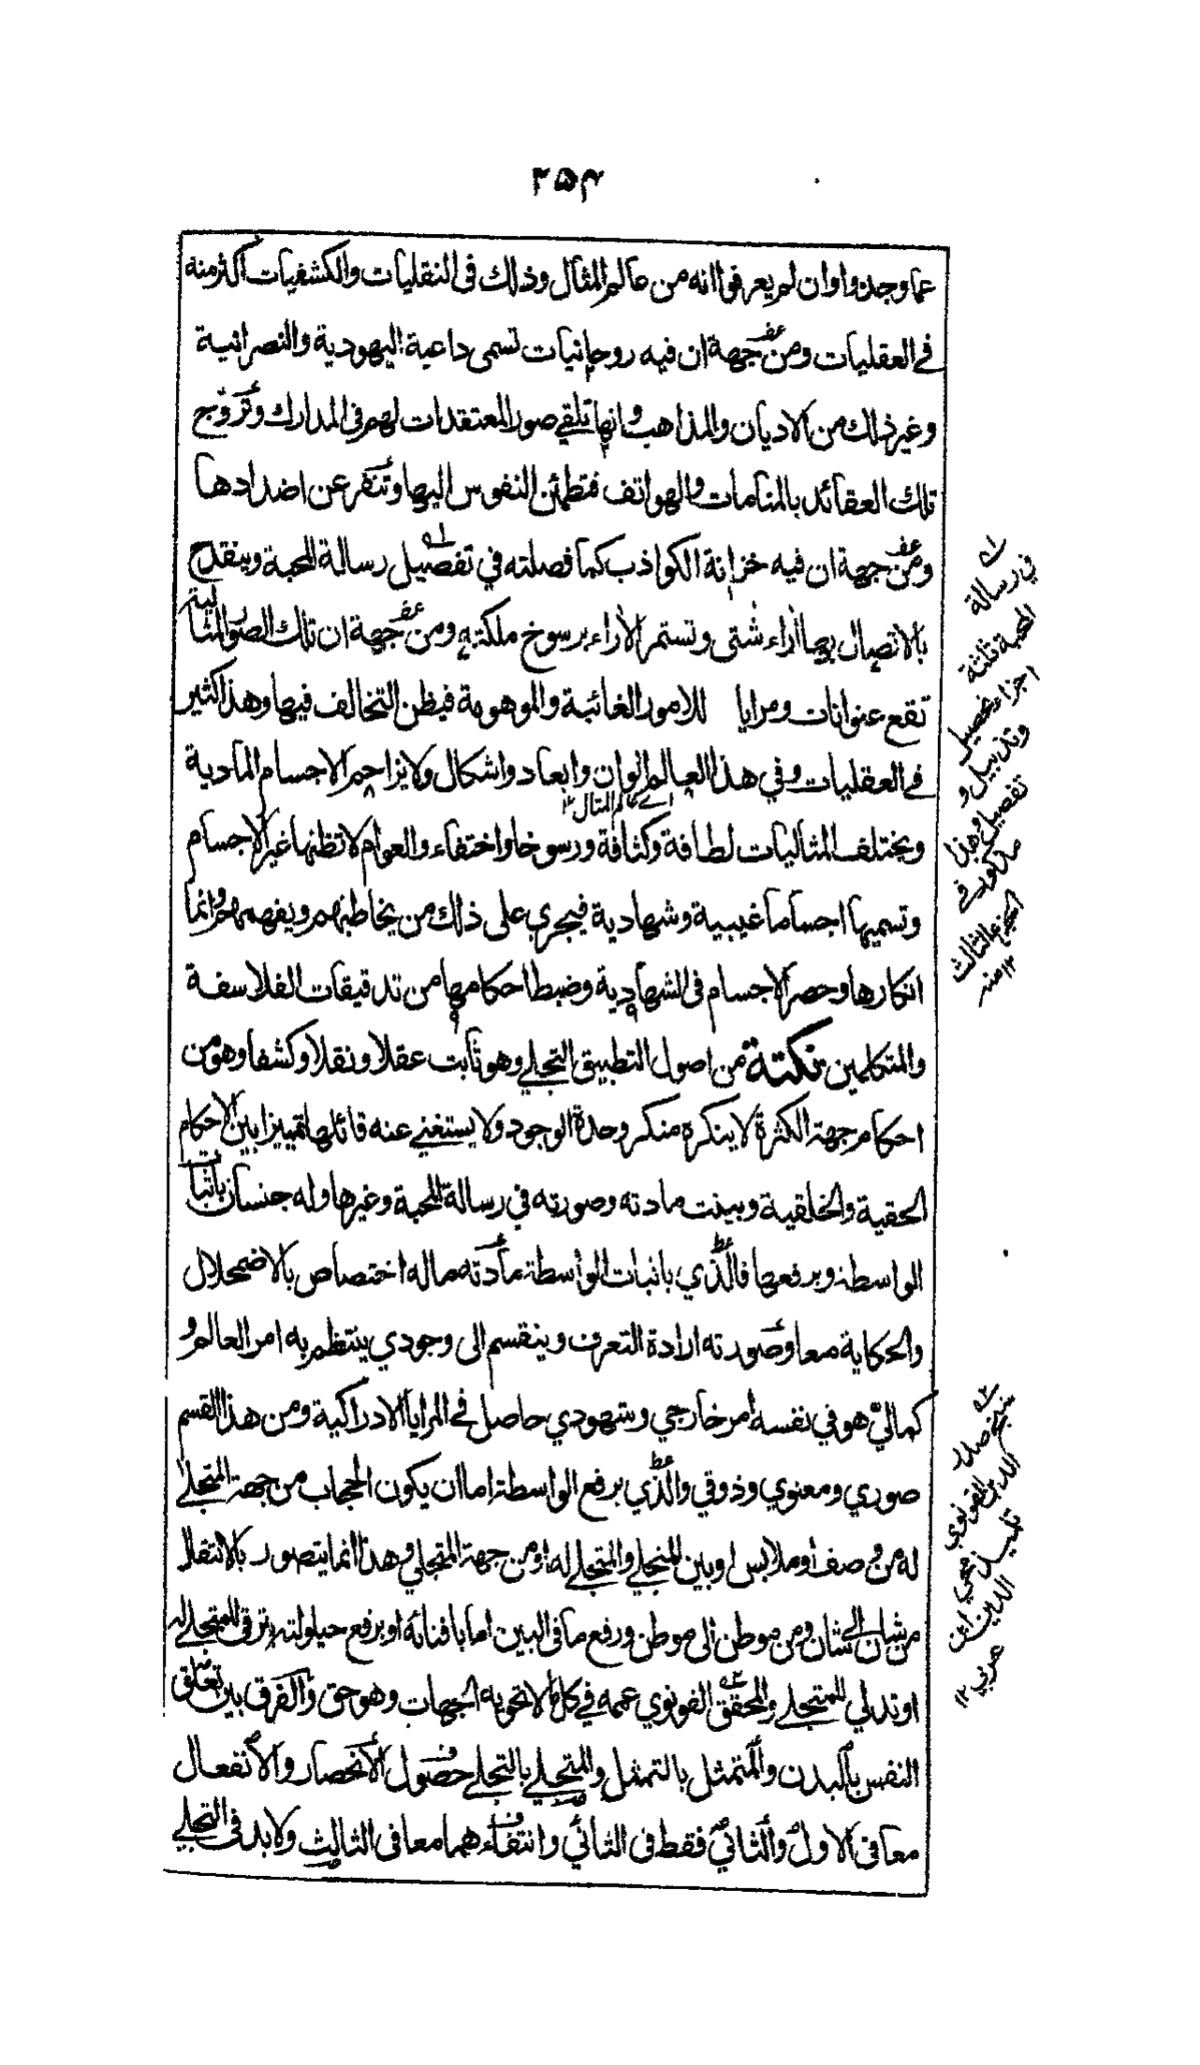 ٢٥٤
عما وجدوا وان لم يعرفوا انه من عالم المثال وذلك فى النقليات والكشفيات اكثر منه
فے العقليات ومن جهة ان فيه روحانيات تسمى داعية اليهودية والنصرانية
وغير ذلك من الاديان والمذاهب وانها تلقي صور المعتقدات لهم فى المدارك وتروج
تلك العقائد بالمنامات والهواتف فتطمئن النفوس اليها وتنفر عن اضدادها
ومن جهة ان فيه خزانة الكواذب كما فصلته في تفصيل رسالة المحبة وينقدح
بالاتصال بها اٰراء شتى وتستمر الاٰراء برسوخ ملكته ومن جهة ان تلك الصور المثالية
تقع عنوانات ومرايا للامور الغائبة والموهومة فيظن التخالف فيها وهذا كثير
فے العقليات وفي هذا العالم الوان وابعاد واشكال ولا يزاحم الاجسام المادية
اے عالم المثال ١٢
ويختلف المثاليات لطافة وكثافة ورسوخا واختفاء والعوام لا تظنها غير الاجسام
وتسميها اجساما غيبية وشهادية فيجرى على ذلك من يخاطبهم ويفهمهم وانما
انكارها وحصر الاجسام فى الشهادية وضبط احكامها من تدقيقات الفلاسفة
والمتكلمين نكتة من اصول التطبيق التجلے وهو ثابت عقلا ونقلا وكشفا وهو من
احكام جهة الكثرة لا ينكره منكر وحدة الوجود ولا يستغنے عنه قائلها تمييزا بين الاحكام
الحقية والخلقية وبينت مادته وصورته في رسالة المحبة وغيرها وله جنسان باثبات
الواسطة وبرفعها فالذي باثبات الواسطة مادته ماله اختصاص بالاضمحلال
والحكاية معا وصورته ارادة التعرف وينقسم الى وجودي ينتظم به امر العالم و
كمالي هو في نفسه امر خارجي وشهودي حاصل فے المرايا الادراكية ومن هذا القسم
صوري ومعنوي وذوقي والذي برفع الواسطة اما ان يكون الحجاب من جهة المتجلے
له من وصف او ملابس او بين المتجلے والمتجلے له او من جهة المتجلي وهذا انما يتصور بالانتقال
من شان الى شان ومن موطن الى موطن ورفع ما فى البين اما بافنائه او برفع حيلولته بترقى المتجلے له
او تدلي المتجلے والمحقق القونوي عممه في كل لا تحويه الجهات وهو حق والفرق بين تعلق
النفس بالبدن والمتمثل بالتمثل والمتجلے بالتجلے حصول الانحصار والانفعال
معا فى الاول والثاني فقط فى الثاني وانتفاء هما معا فى الثالث ولا بد فى التجلے
في رسالة
المحبة ثلثة
اجزاء تحصيل
وتذييل و
تفصيل وهذا
مذكور في
الجزء الثالث
١٢ منه
شيخ صدر
الدين القونوي
تلميذ محي
الدين ابن
عربي ١٢